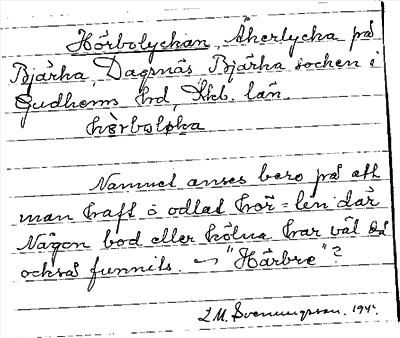 Hörbolyckan, Åkerlycka på
Bjärka, Dagsnäs Bjärka socken i
Gudhems hd, Skbl. län.
hörbolyka
Namnet anses bero på att
man haft o odlat hör = lin där
Någon bod eller kölna har väl då
också funnits. ~ "Härbre"?
L M. Svenungsson. 194